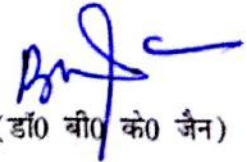 (डॉ0 बी0 के0 जैन)